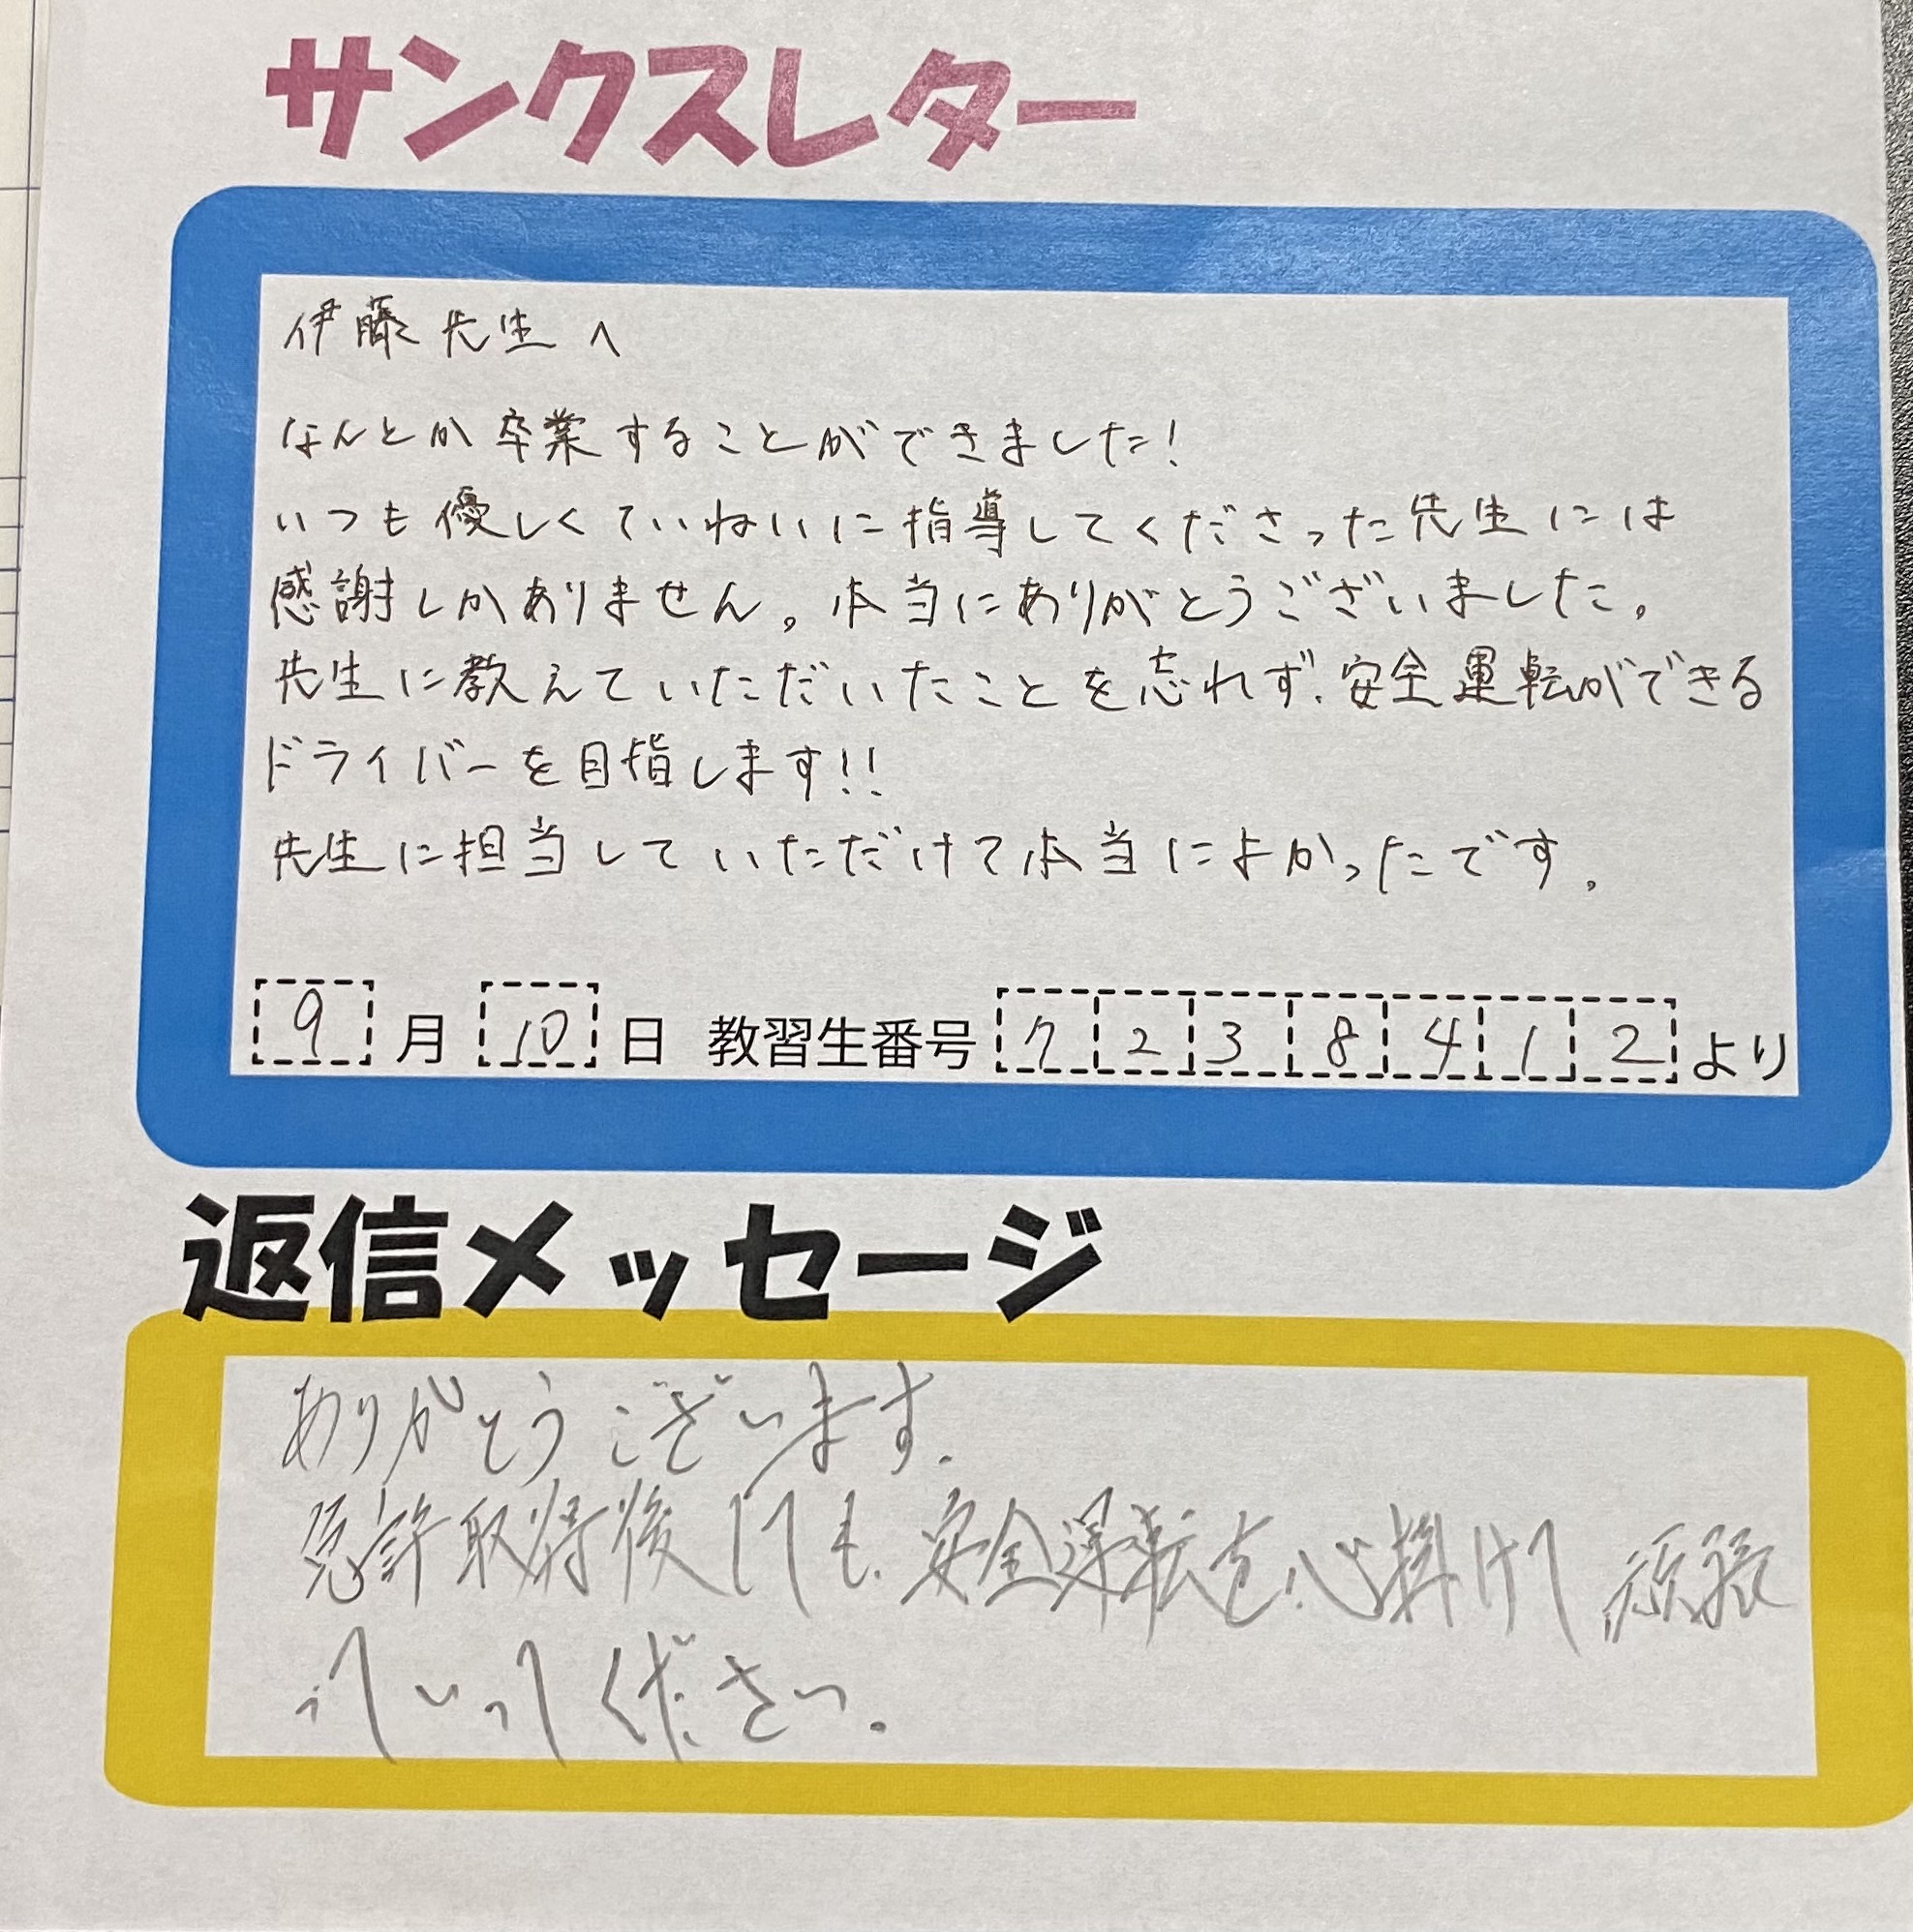 サンクスレター
伊藤先生へ
なんとか卒業することができました!
いつも優しくていねいに指導してくださった先生には
感謝しかありません。本当にありがとうございました。
先生に教えていただいたことを忘れず、安全運転ができる
ドライバーを目指します!!
先生に担当していただけて本当によかったです。
9月10日 教習生番号7238412より
返信メッセージ
ありがとうございます。
免許取得後しても、安全運転を心掛けて頑張
っていってください。